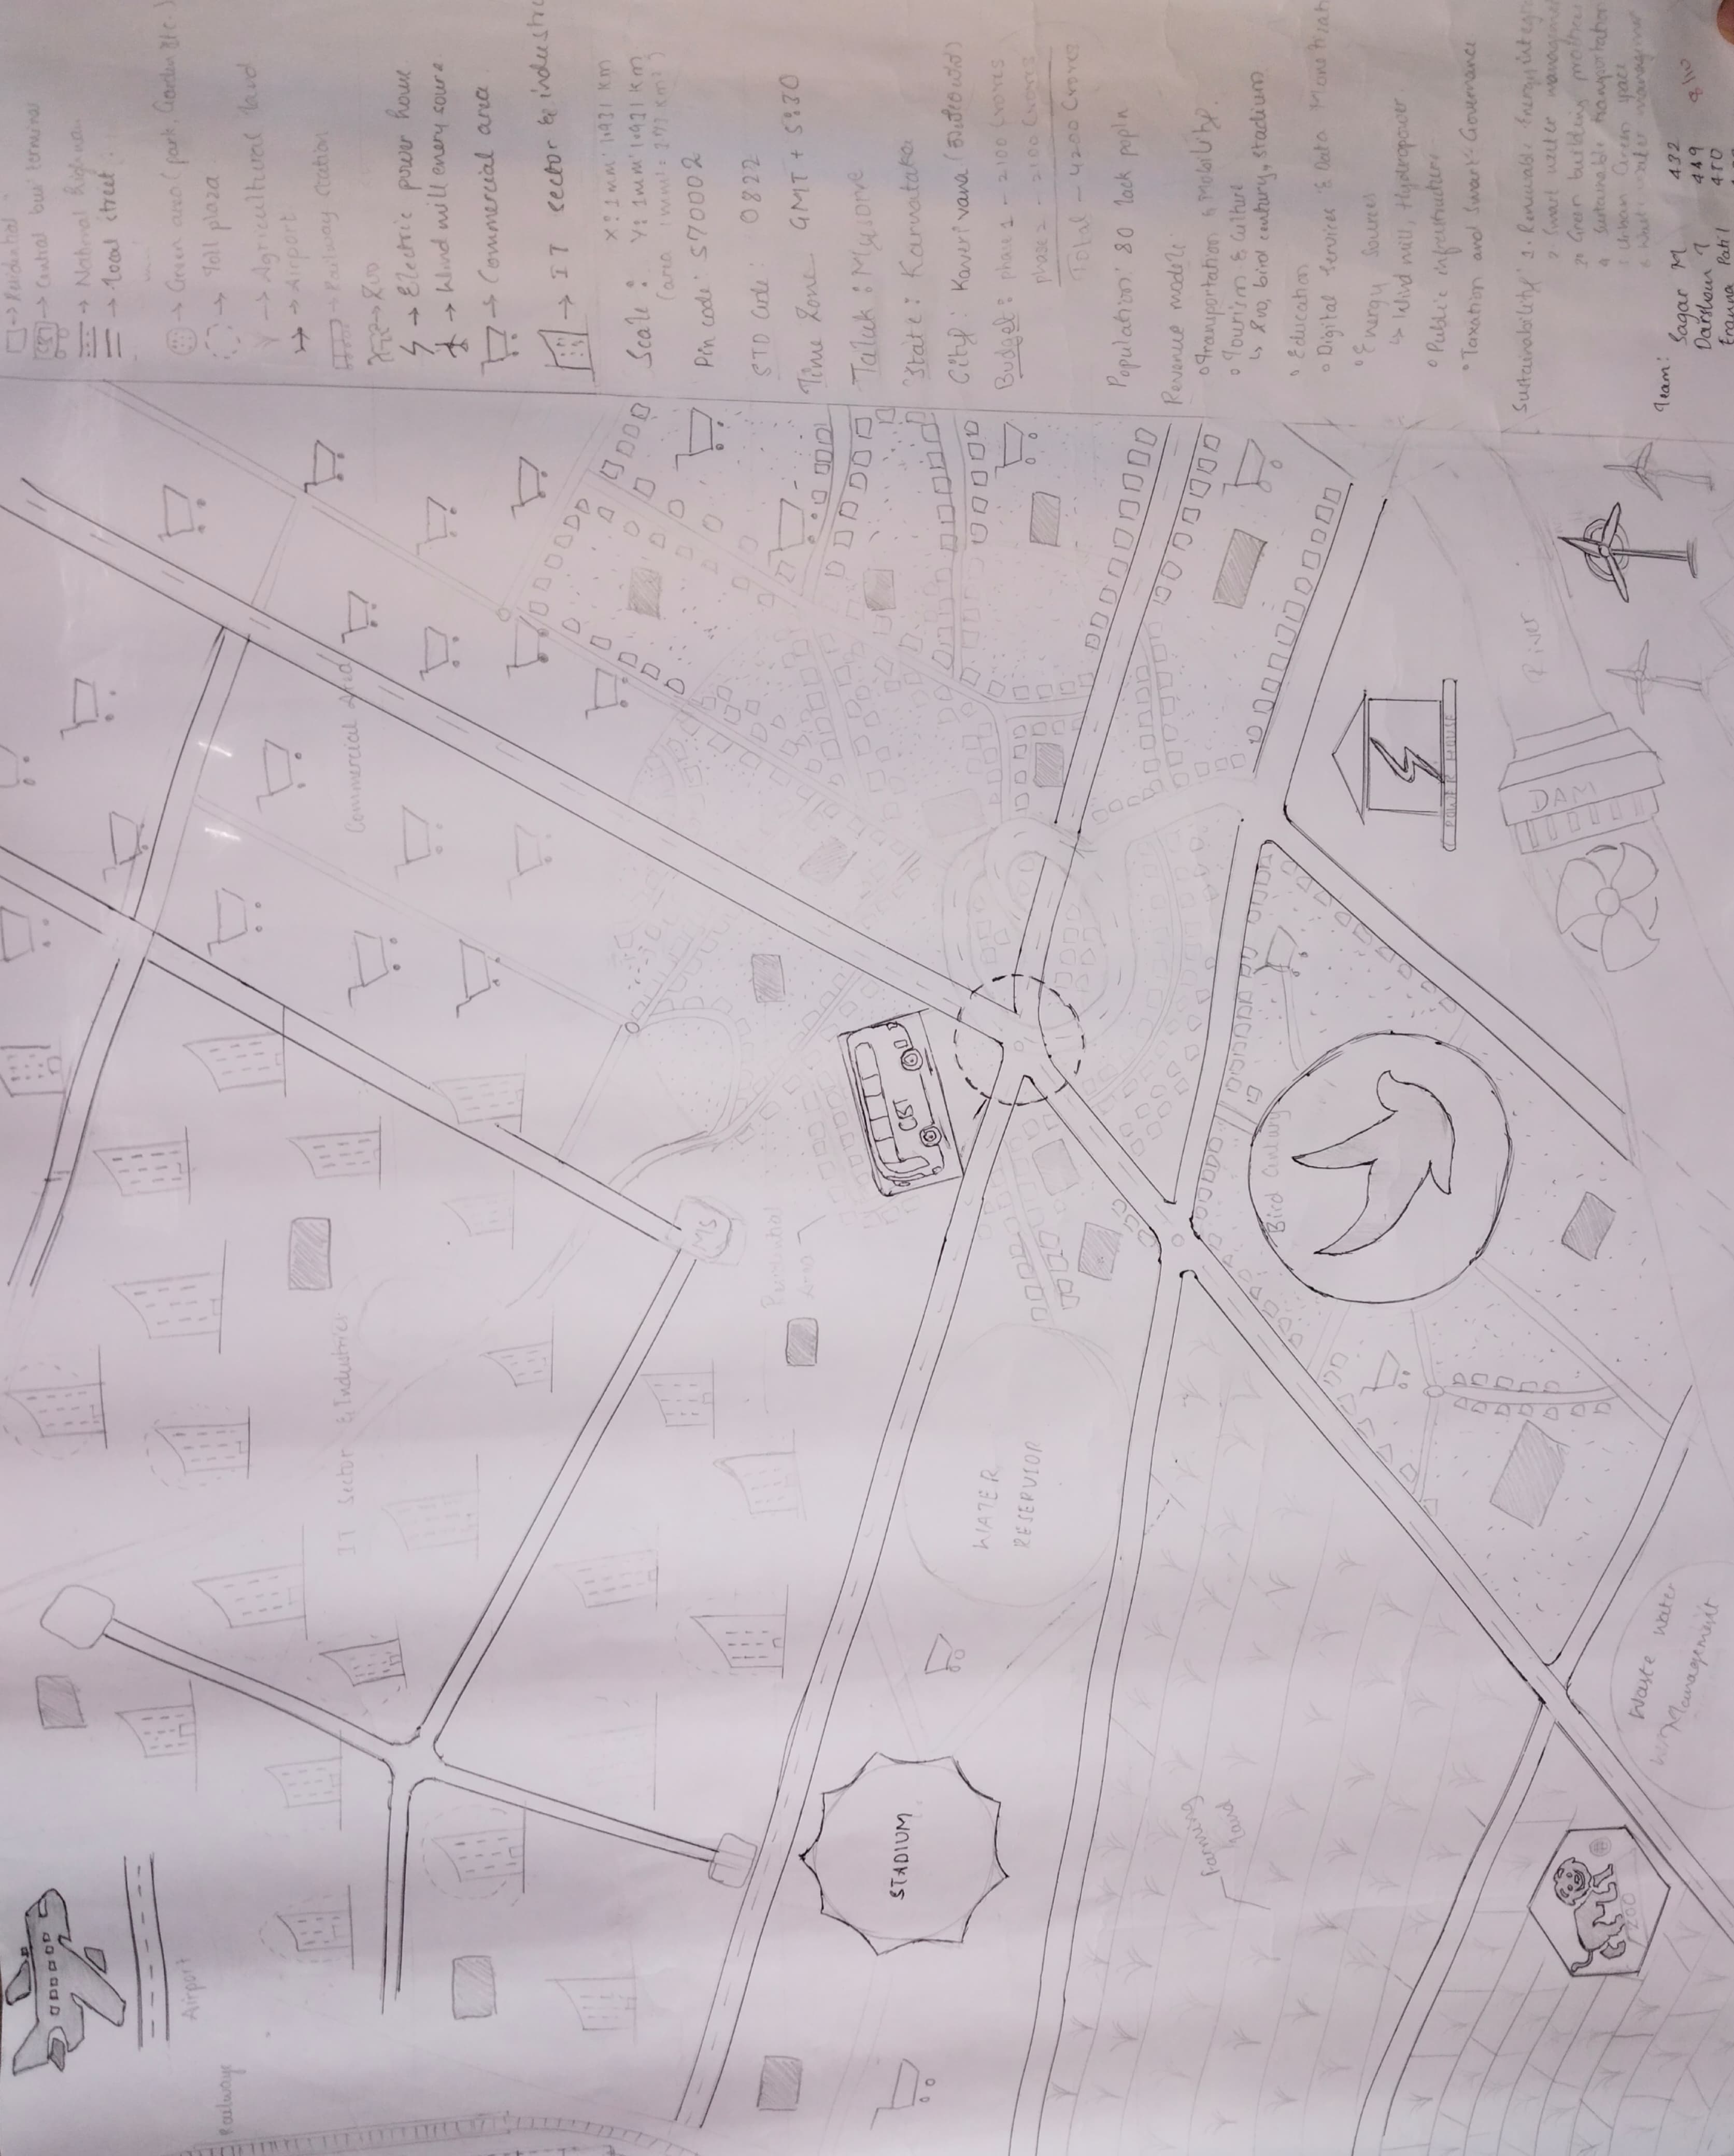 Airport
Railways
IT Sector & Industries
Commercial Area
MS
Residential
Area
CBT
STADIUM
WATER
RESERVIOR
Farming
land
Bird Centurry
POWER HOUSE
DAM
River
ZOO
Waste water
Management
→ Residential
CBT → Central bus terminal
→ National highway
→ Local street
→ Green area (park, Garden etc.)
→ Toll plaza
→ Agricultural land
→ Airport
→ Railway station
→ Zoo
→ Electric power house
→ Wind mill enery source
→ Commercial area
→ IT sector & industri
Scale :
X: 1mm: 1.931 Km
Y: 1mm: 1.931 Km
Pin code: 570002
STD Code: 0822
Time Zone GMT + 5:30
Taluk : Mysore
State : Karnataka
City : Kaverivana
Budget : phase 1 - 2100 Crores
phase 2 - 2100 Crores
Total - 4200 Crores
Population: 80 lack popln
Revenue models:
Transportation & Mobility.
Tourism & Culture
↳ Zoo, bird century, stadium
Education
Digital Services & Data Monetizati
Energy Sources
↳ Wind mill, Hydropower
Public infrastructure
Taxation and Smart Governance
Sustainability 1. Renewable Energy integr
2. Smart water managemen
Green building practices
4. Sustainable transportation
Urban Green space
Waste water managemen
Team:
Sagar M 432
Darshan 449
Eranna Patil 450
8/10